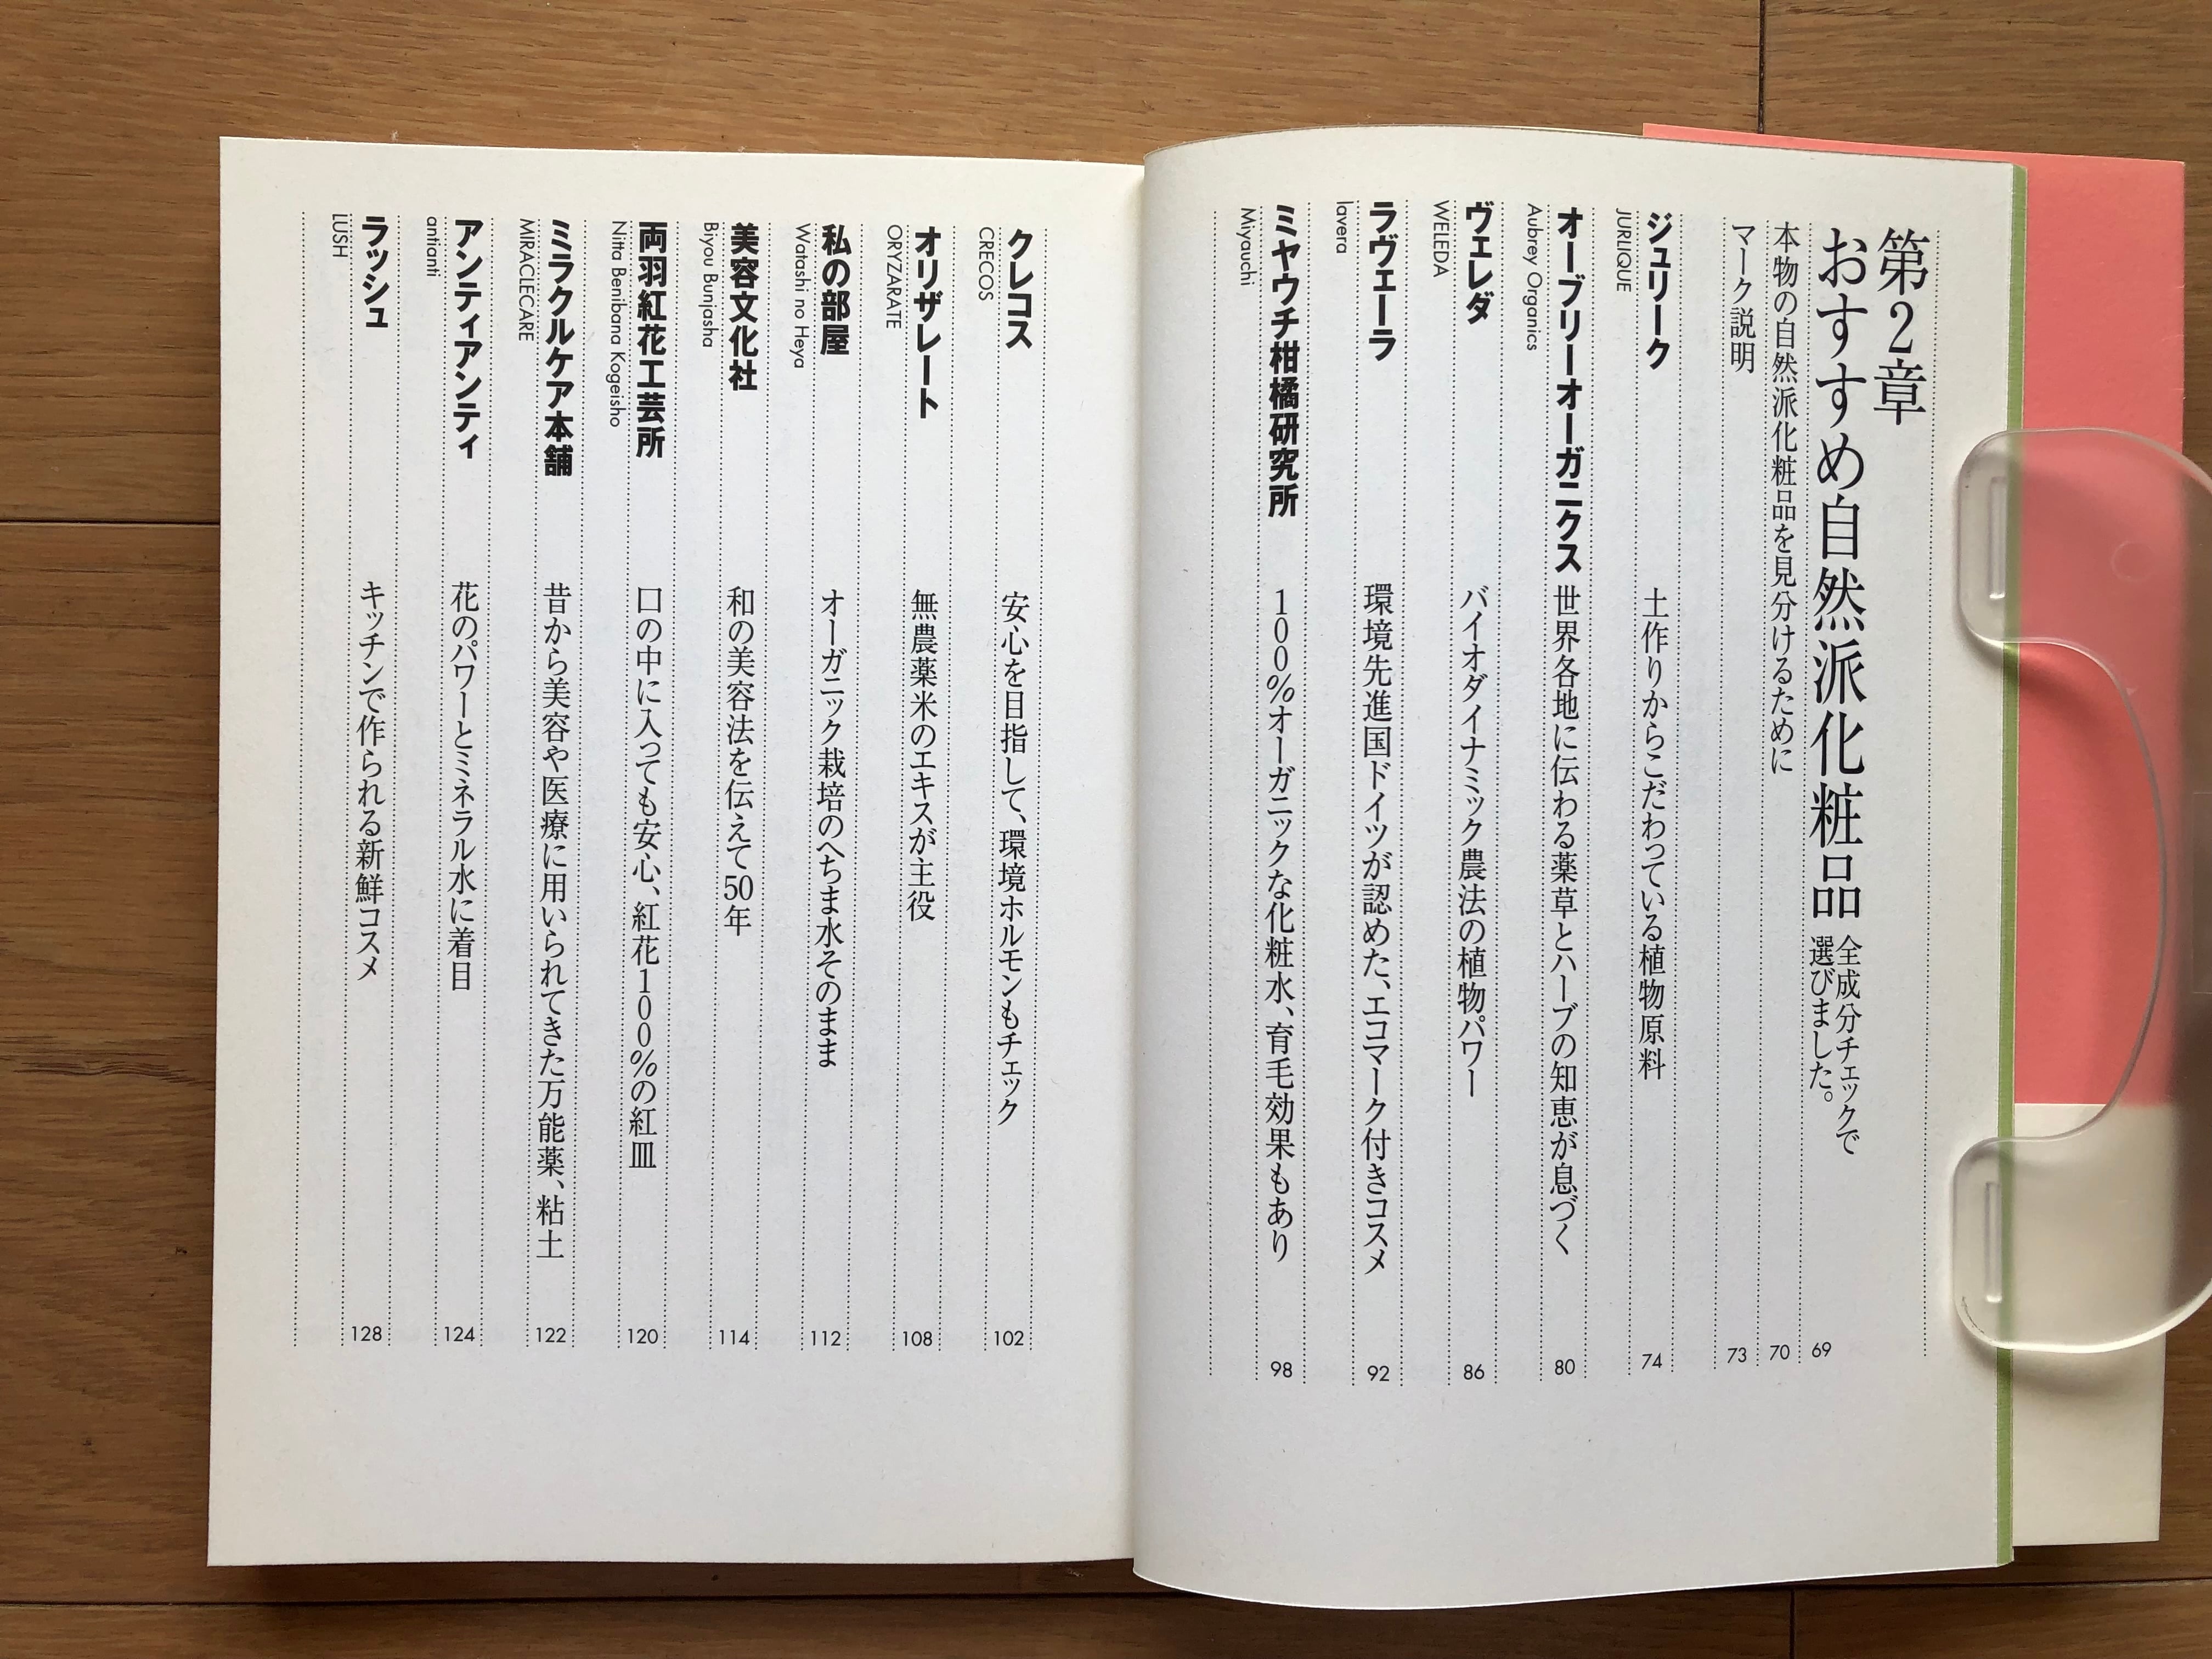 第2章
おすすめ自然派化粧品
全成分チェックで
選びました。
69
本物の自然派化粧品を見分けるために
70
マーク説明
73
ジュリーク
JURLIQUE
土作りからこだわっている植物原料
74
オーブリーオーガニクス
Aubrey Organics
世界各地に伝わる薬草とハーブの知恵が息づく
80
ヴェレダ
WELEDA
バイオダイナミック農法の植物パワー
86
ラヴェーラ
lavera
環境先進国ドイツが認めた、エコマーク付きコスメ
92
ミヤウチ柑橘研究所
Miyauchi
100%オーガニックな化粧水、育毛効果もあり
98
クレコス
CRECOS
安心を目指して、環境ホルモンもチェック
102
オリザレート
ORYZARATE
無農薬米のエキスが主役
108
私の部屋
Watashi no Heya
オーガニック栽培のへちま水そのまま
112
美容文化社
Biyou Bunjasha
和の美容法を伝えて50年
114
両羽紅花工芸所
Nitta Benibana Kogeisho
口の中に入っても安心、紅花100%の紅皿
120
ミラクルケア本舗
MIRACLECARE
昔から美容や医療に用いられてきた万能薬、粘土
122
アンティアンティ
antianti
花のパワーとミネラル水に着目
124
ラッシュ
LUSH
キッチンで作られる新鮮コスメ
128